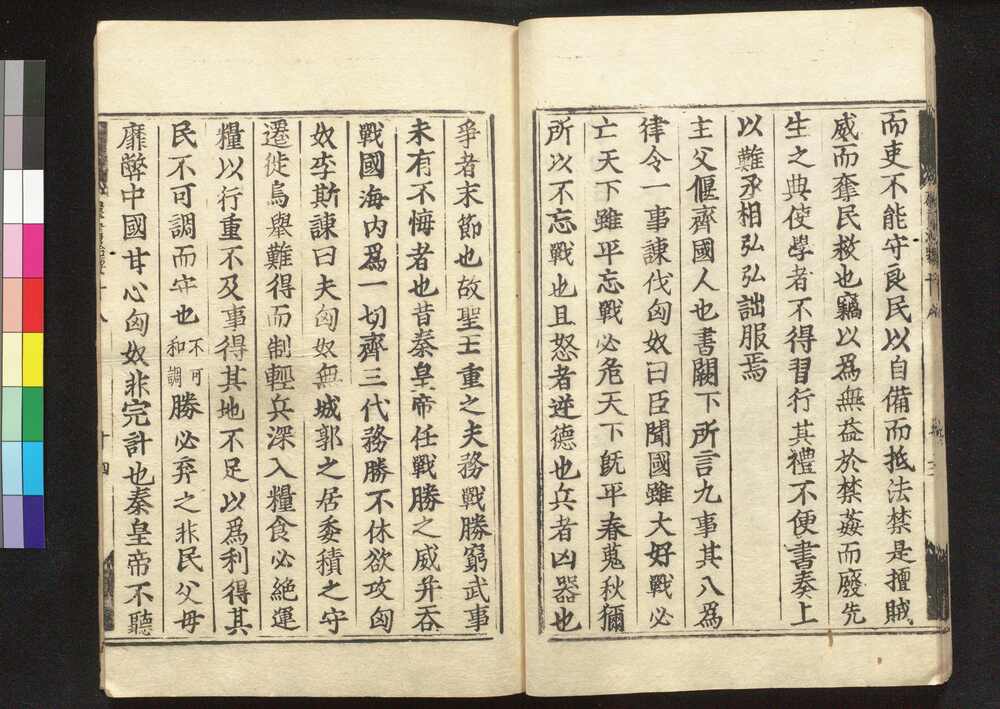 而吏不能守良民以自備而抵法禁是擅賊
威而奪民救也竊以爲無益於禁姦而廢先
生之典使學者不得習行其禮不便書奏上
以難丞相弘弘詘服焉
主父偃齊國人也書闕下所言九事其八爲
律令一事諫伐匈奴曰臣聞國雖大好戰必
亡天下雖平忘戰必危天下既平春蒐秋獮
所以不忘戰也且怒者逆德也兵者凶器也
爭者末節也故聖王重之夫務戰勝窮武事
未有不悔者也昔秦皇帝任戰勝之威幷吞
戰國海内爲一切齊三代務勝不休欲攻匈
奴李斯諫曰夫匈奴無城郭之居委積之守
遷徙鳥舉難得而制輕兵深入糧食必絕運
糧以行重不及事得其地不足以爲利得其
民不可調而守也不可和調勝必弃之非民父母
靡弊中國甘心匈奴非完計也秦皇帝不聽
十四